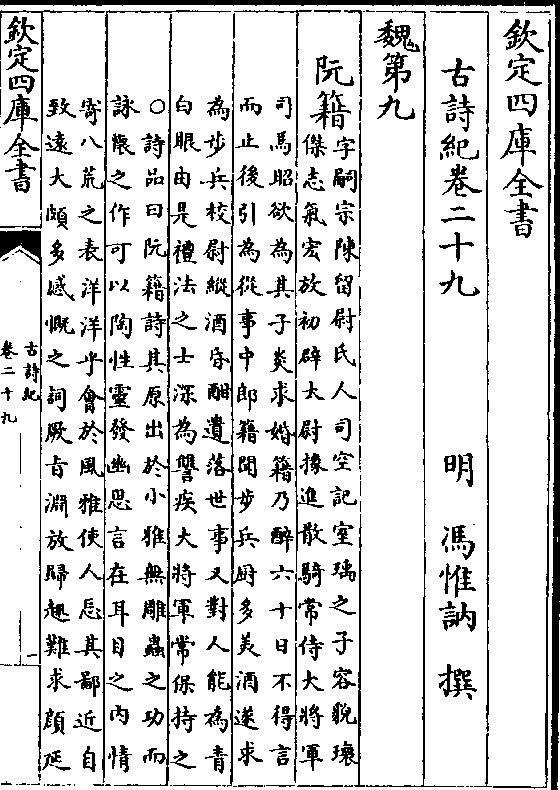 欽定四庫全書
古詩紀卷二十九
明 馮惟訥 撰
魏第九
阮籍
字嗣宗陳留尉氏人司空記室瑀之子容貌瓌
傑志氣宏放初辟太尉掾進散騎常侍大將軍
司馬昭欲為其子炎求婚籍乃醉六十日不得言
而止後引為從事中郎籍聞步兵厨多美酒遂求
為步兵校尉縱酒昏酣遺落世事又對人能為青
白眼由是禮法之士深為讐疾大將軍常保持之
○詩品曰阮籍詩其原出於小雅無雕蟲之功而
詠懷之作可以陶性靈發幽思言在耳目之内情
寄八荒之表洋洋乎會於風雅使人忘其鄙近自
致遠大頗多感慨之詞厥旨淵放歸趣難求顔延
欽定四庫全書
古詩紀
卷二十九
一